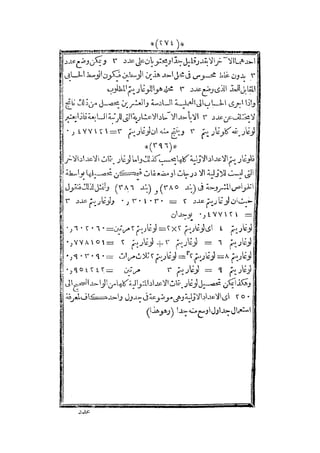 *(٢٧٤)*
احدهما الآخر الا بقدر قليل جدا ومحتويان على عدد ٣ ويمكن وضع عدد
٣ بدون خلط محسوس فى محل احد هذين الوسطين فيكون الوسط الحسابى
المقابل للحد الذى وضع عدد ٣ محله هو اللوغاريتم المطلوب
واذا اجرى الحساب الى العملية السادسة والعشرين يحصل من ذلك ناتج
لا يختلف عن عدد ٣ الا بآحاد الاعشارية التى للرتبة السابعة فاذا يعتبر
لوغاريتمه كلوغاريتم ٣ وينتج منه ان لوغاريتم ٣ = ٤٧٧١٢١ ر٠
*(٣٩٦)*
فلوغاريتم الاعداد الاولية كلها يحسب كذلك واما لوغاريتمات الاعداد الاخر
التى ليست الاولية الا درجات او مضعفات فيمكن تحصيلها بواسطة
الخواص المشروحة فى (بند ٣٨٥) و (بند ٣٨٦) ولنمثل لذلك فنقول
حيث ان لوغاريتم عدد ٢ = ٣٠١٠٣٠ ر٠ ولوغاريتم عدد ٣
= ٤٧٧١٢١ ر٠ يوجد ان
لوغاريتم ٤ اى لوغاريتم ٢×٢ = لوغاريتم ٢ مرتين = ٦٠٢٠٦٠ ر٠
لوغاريتم ٦ = لوغاريتم ٣ + لوغاريتم ٢ = ٧٧٨١٥١ ر٠
لوغاريتم ٨ = لوغاريتم ٢ = لوغاريتم ٢ ثلاث مرات = ٩٠٣٠٩٠ ر٠
لوغاريتم ٩ = لوغاريتم ٣ مرتين = ٩٥٤٢٤٢ ر٠
وهكذا يمكن تحصيل لوغاريتمات الاعداد المتوالية كلها من الواحد الصحيح الى
٢٥٠ اى الاعداد الاولية وهى موضوعة فى جدول واحد كاف لمعرفة
استعمال جداول اوسع منه جدا (وهو هذا)